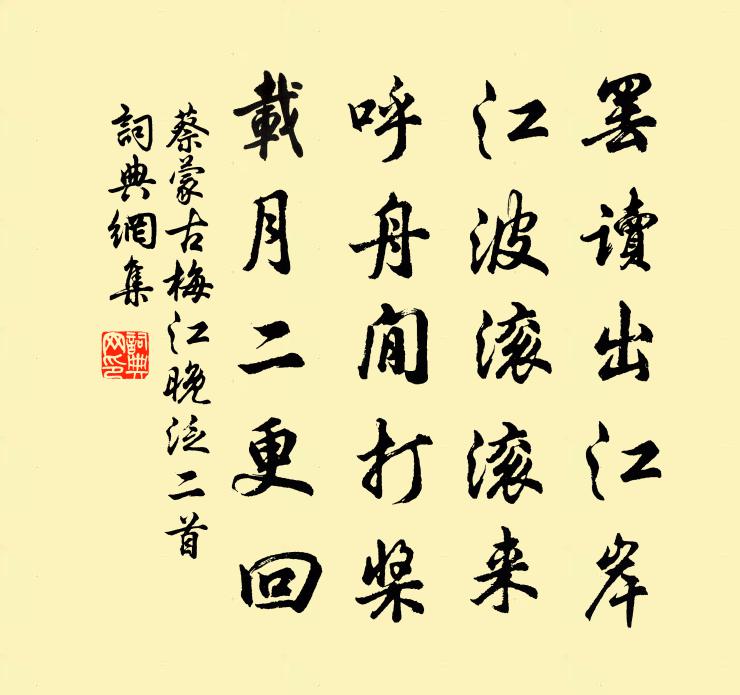 罷讀出江岸
江波滚滚来
呼舟閒打槳
載月二更回
蔡蒙古梅江晚泛二首
詞典網集
詞典網印